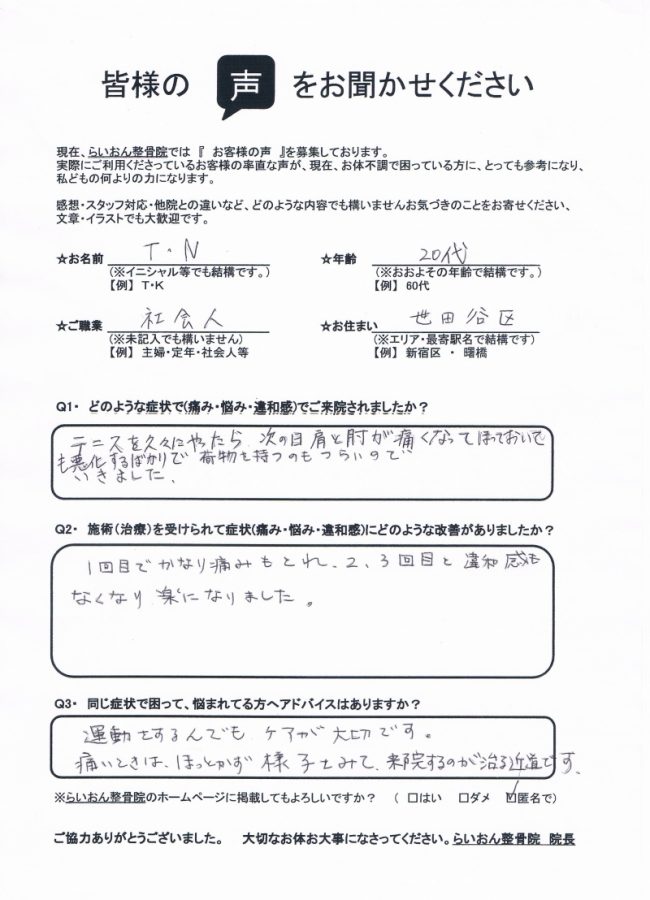 皆様の 声 をお聞かせください
現在、らいおん整骨院では『 お客様の声 』を募集しております。
実際にご利用くださっているお客様の率直な声が、現在、お体不調で困っている方に、とっても参考になり、
私どもの何よりの力になります。
感想・スタッフ対応・他院との違いなど、どのような内容でも構いませんお気づきのことをお寄せください、
文章・イラストでも大歓迎です。
☆お名前 T・N ☆年齢 20代
(※イニシャル等でも結構です。) (※おおよその年齢で結構です。)
【例】 T・K 【例】 60代
☆ご職業 社会人 ☆お住まい 世田谷区
(※未記入でも構いません) (※エリア・最寄駅名で結構です)
【例】 主婦・定年・社会人等 【例】 新宿区 ・ 曙橋
Q1・ どのような症状で(痛み・悩み・違和感)でご来院されましたか？
テニスを久々にやったら 次の日肩と肘が痛くなってほっておいて
も悪化するばかりで 荷物を持つのもつらいので
いきました、
Q2・ 施術(治療)を受けられて症状(痛み・悩み・違和感)にどのような改善がありましたか？
1回目でかなり痛みもとれ、2、3回目と違和感も
なくなり 楽になりました。
Q3・ 同じ症状で困って、悩まれてる方へアドバイスはありますか？
運動をするんでも ケアが大切です。
痛いときは、ほっとかず 様子をみて、来院するのが治る近道です、
※らいおん整骨院のホームページに掲載してもよろしいですか？ ( □はい □ダメ ☑匿名で)
ご協力ありがとうございました。 大切なお体お大事になさってください。らいおん整骨院 院長